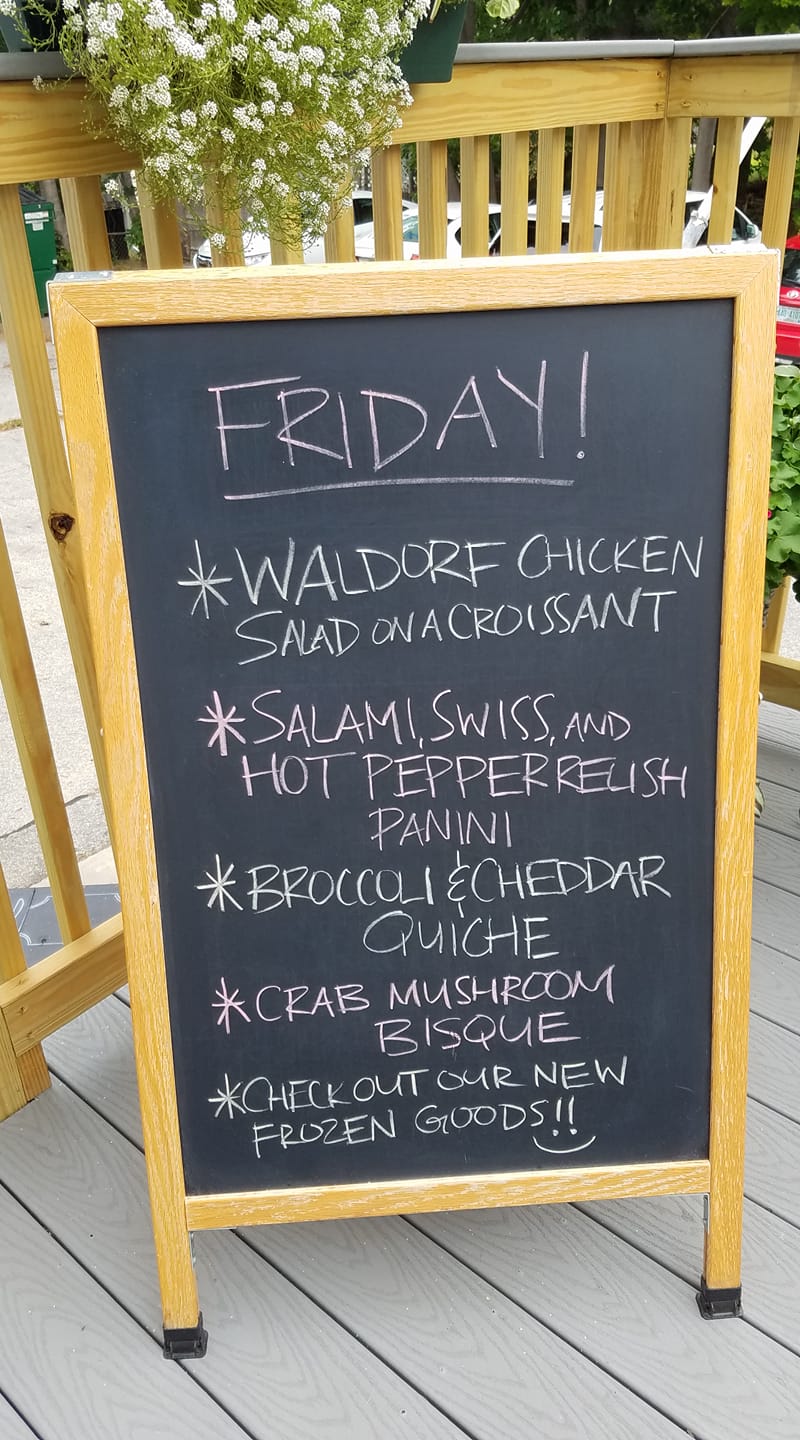 FRIDAY!
* WALDORF CHICKEN
SALAD ON A CROISSANT
* SALAMI, SWISS, AND
HOT PEPPER RELISH
PANINI
* BROCCOLI & CHEDDAR
QUICHE
* CRAB MUSHROOM
BISQUE
* CHECK OUT OUR NEW
FROZEN GOODS!!